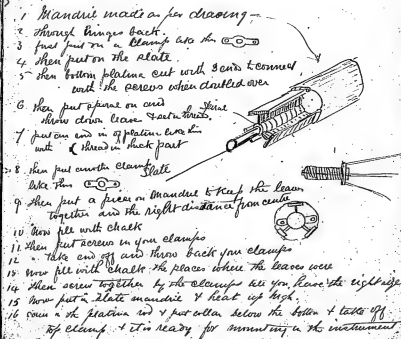 1 Mandril made as per drawing -
2 through hinges back.
3 first put on a clamp like this
4 then put on the slate.
5 then bottom platina cut with 3 ends to connect
with the screws when doubled over
6 then put spiral on and
throw down leave & set in threads
Spiral
7 put one end in of platina like this
with ( thread in thick part
8 then put another clamp
like this
Slate
9 then put a piece on Mandril to keep the leaves
together and the right distance from centre
10 Now fill with chalk
11 then put screws in your clamps
12 " take end off and throw back your clamps
13 Now fill with chalk the places where the leaves were
14 then screw together by the clamps till you have the right size
15 Now put in slate mandril & heat up high
16 the platina rod & put collar below the bottom & take off
top clamp & it is ready for mounting in the instrument